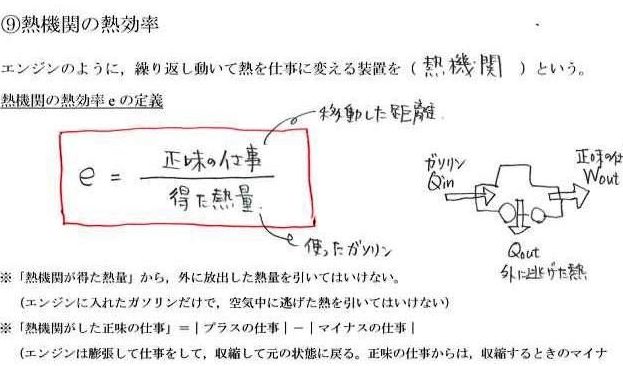 ⑨熱機関の熱効率
エンジンのように，繰り返し動いて熱を仕事に変える装置を（ 熱機関 ）という。
熱機関の熱効率 e の定義
移動した距離
e = 正味の仕事
得た熱量
使ったガソリン
ガソリン
Qin
正味の仕
Wout
Qout
外に逃げた熱
※「熱機関が得た熱量」から，外に放出した熱量を引いてはいけない。
（エンジンに入れたガソリンだけで，空気中に逃げた熱を引いてはいけない）
※「熱機関がした正味の仕事」＝｜プラスの仕事｜－｜マイナスの仕事｜
（エンジンは膨張して仕事をして，収縮して元の状態に戻る。正味の仕事からは，収縮するときのマイナ